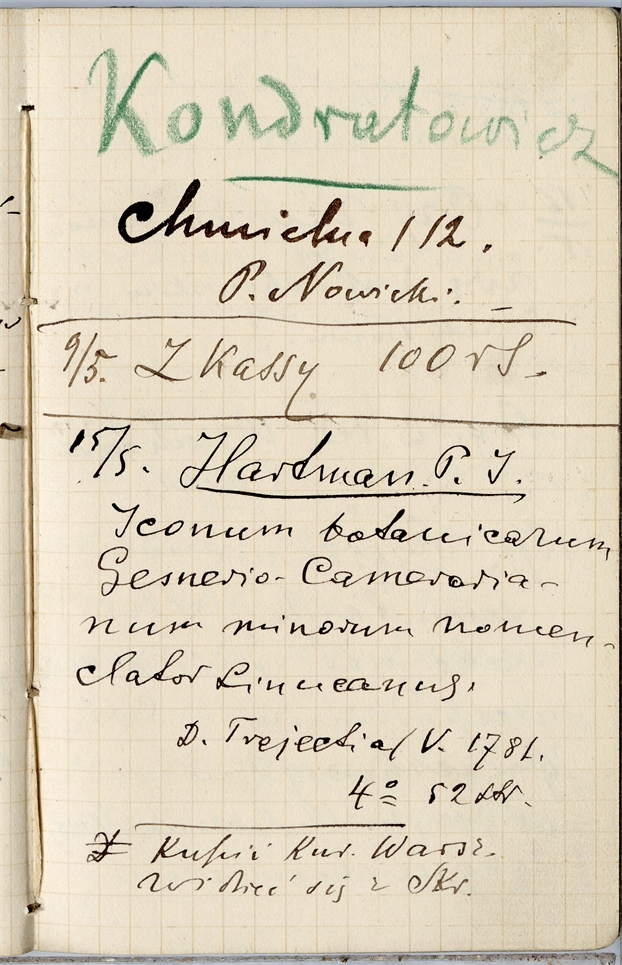 Kondratowicz
Chmielna 112.
P. Nowicki. –
9/5. Z Kassy 100 rS.
15/5. Hartman. P. I.
Iconum botanicarum
Gesnerio-Cameraria-
num minorum nomen-
clator Linneanus.
D. Trejectia/V. 1781.
4º 52 str.
Kupić Kur. Warsz.
widzieć się z Skr.